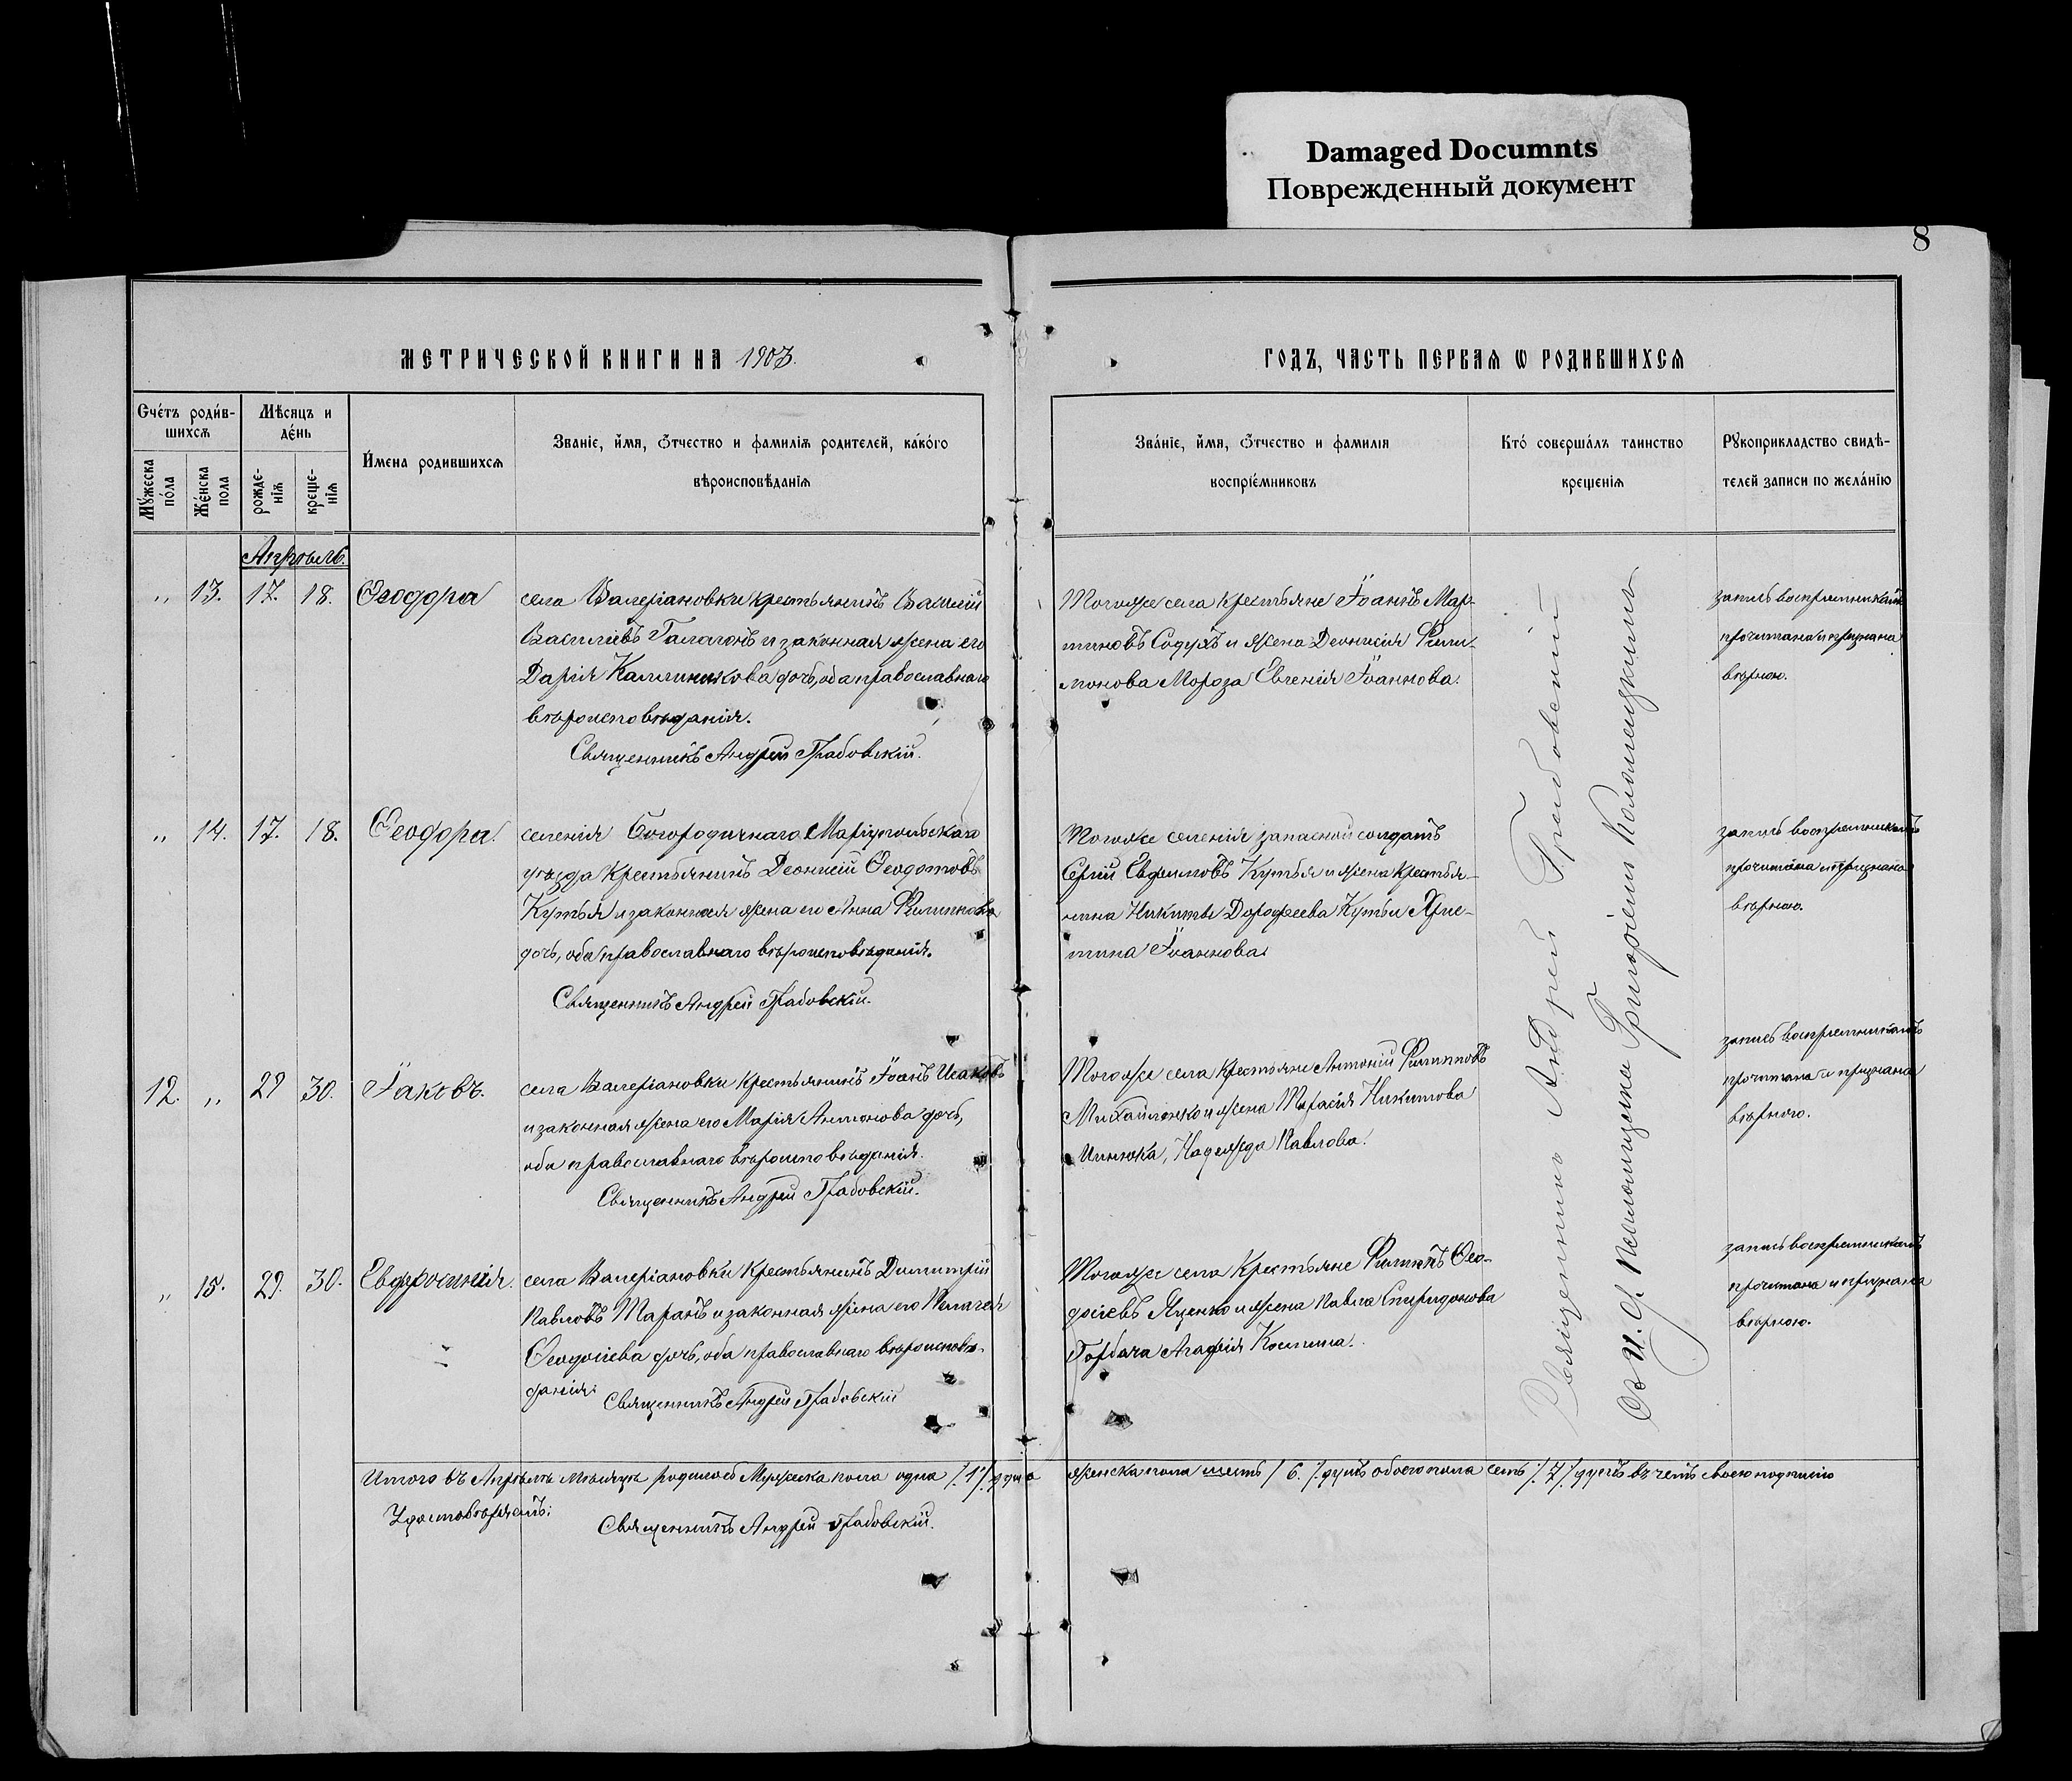 Damaged Documnts
Поврежденный документ
8
МЕТРИЧЕСКОЙ КНИГИ НА 1903.
ГОДЪ, ЧАСТЬ ПЕРВАЯ Ѡ РОДИВШИХСЯ
Счéтъ роди́в-
шихсѧ
Мѣсяцъ и
дéнь
Мꙋ́жеска
по́ла
Жéнска
пола
рожде-
нїѧ
креще-
нїѧ
И́мена родившихсѧ
Званїе, и́мя, Ѻтчество и фамилїѧ родителей, како́го
вѣроисповѣданїѧ
Звáнїе, и́мя, Ѻтчество и фамилїя
воспрїéмниковъ
Кто́ совершáлъ таинство
крещенїѧ
Рꙋкоприкладство свидѣ-
телей записи по желáнїю
Апрѣль.
„ 13. 17. 18. Ѳеодора
села Валеріановки крестьянинъ Василій
Василіевъ Галаганъ и законная жена его
Дарія Каллиникова дочь, оба православнаго
вѣроисповѣданія.
Священникъ Андрей Грабовскій.
Тогоже села крестьяне Іоаннъ Мар-
тиновъ Содухъ и жена Деонисія Фили-
монова Мороза Евгенія Іоаннова.
запись воспріемникамъ
прочитана и признана
вѣрною.
„ 14. 17. 18. Ѳеодора.
селенія Богородичнаго Маріупольскаго
уѣзда крестьянинъ Деонисій Ѳеодотовъ
Кутья и законная жена его Анна Филиппова
дочь, оба православнаго вѣроисповѣданія.
Священникъ Андрей Грабовскій.
Тогоже селенія запасной солдатъ
Сергій Евфимовъ Кутья и жена крестья-
нина Никиты Дорофеева Кутьи Хрис-
тина Іоаннова.
запись воспріемникамъ
прочитана и признана
вѣрною.
12. „ 29 30. Іаковъ.
села Валеріановки крестьянинъ Іоаннъ Исаковъ
и законная жена его Марія Антонова дочь,
оба православнаго вѣроисповѣданія.
Священникъ Андрей Грабовскій.
Тогоже села крестьяне Антоній Филипповъ
Михайленко и жена Тарасія Никитова
Надежда Павлова.
запись воспріемникамъ
прочитана и признана
вѣрною.
„ 15. 29. 30. Евфросинія.
села Валеріановки крестьянинъ Димитрій
Павловъ Таранъ и законная жена его Пелагея
Ѳеодосіева дочь, оба православнаго вѣроисповѣ-
данія.
Священникъ Андрей Грабовскій
Тогоже села крестьяне Филиппъ Ѳео-
досіевъ Яценко и жена Павла Спиридонова
Горбача Агафія Космина.
запись воспріемникамъ
прочитана и признана
вѣрною.
Священникъ Андрей Грабовскій
съ и. д. псаломщика Григоріемъ Коломецкимъ
Итого въ Апрѣлѣ мѣсяцѣ родилось Мужеска пола одна /.1/. душа женска пола шесть / 6. /. душъ обоего пола семь /. 7 /. душъ въ чемъ своею подписью
Удостовѣряемъ:
Священникъ Андрей Грабовскій.